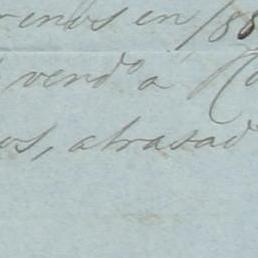 renos en 188
vend.º a
os, atrasad